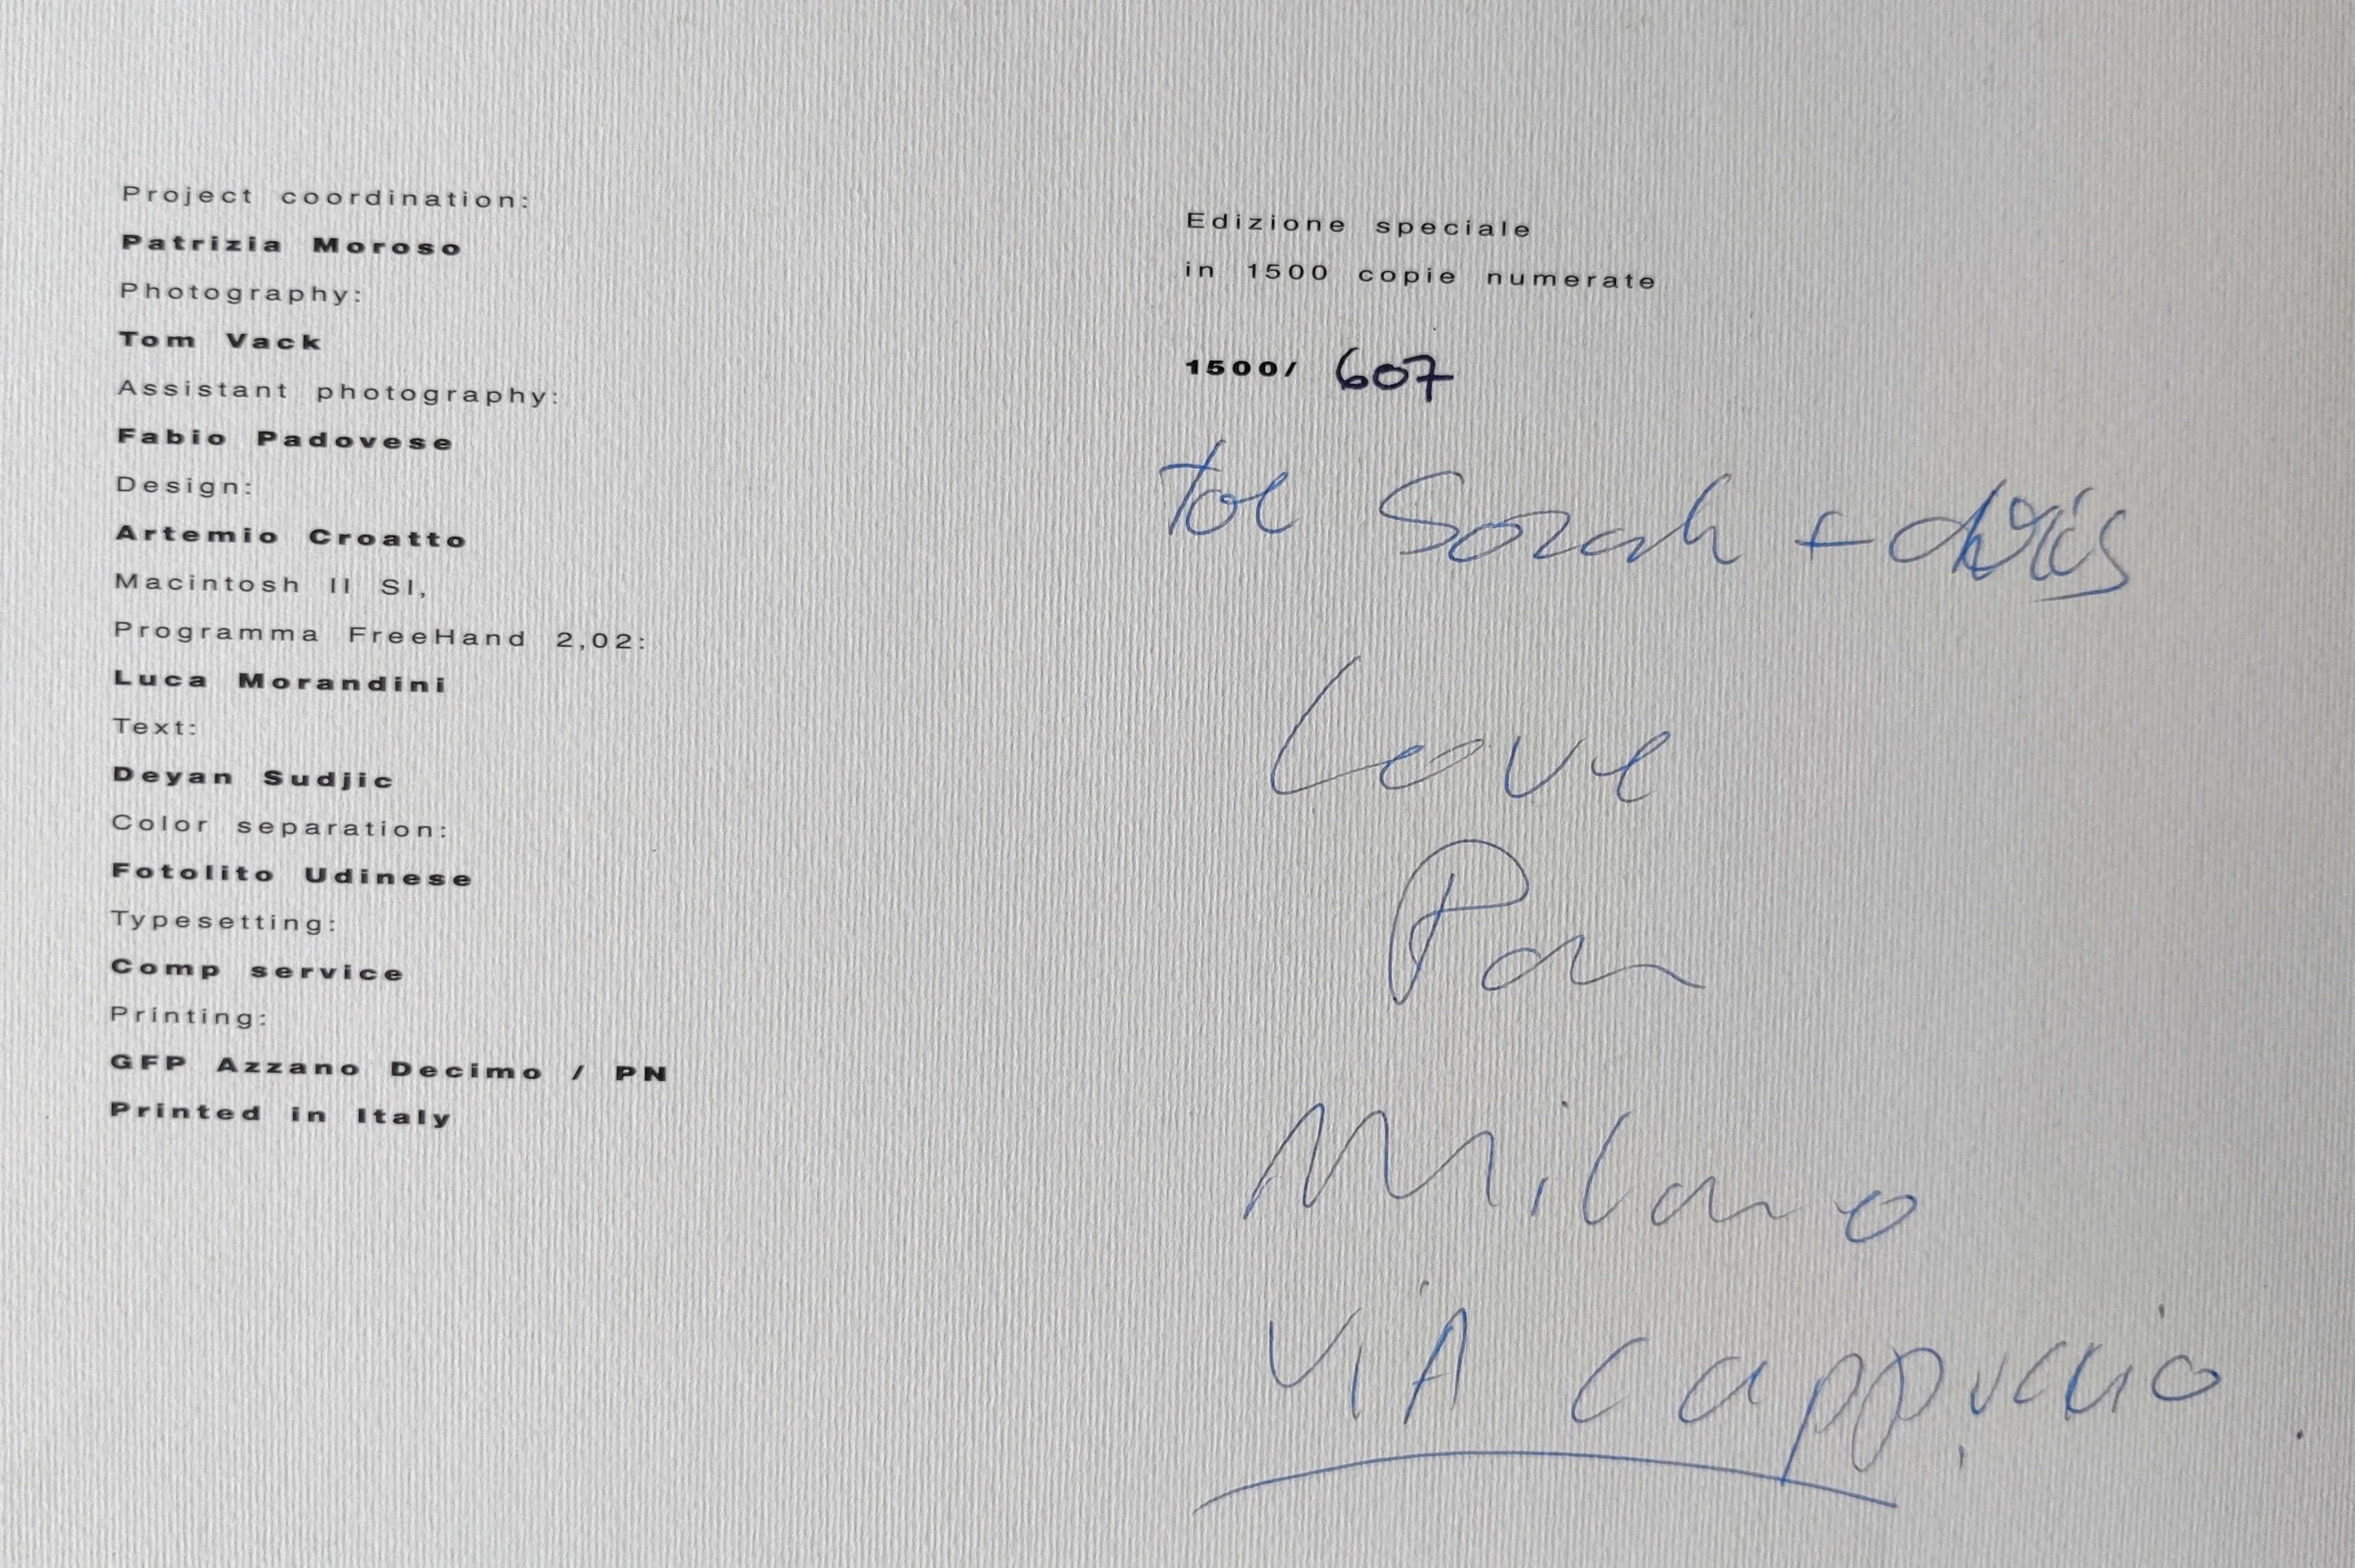 Project coordination:
Patrizia Moroso
Photography:
Tom Vack
Assistant photography:
Fabio Padovese
Design:
Artemio Croatto
Macintosh II SI,
Programma FreeHand 2,02:
Luca Morandini
Text:
Deyan Sudjic
Color separation:
Fotolito Udinese
Typesetting:
Comp service
Printing:
GFP Azzano Decimo / PN
Printed in Italy
Edizione speciale
in 1500 copie numerate
1500/ 607
Sarah +
Love
Milano
ViA Cappuccio